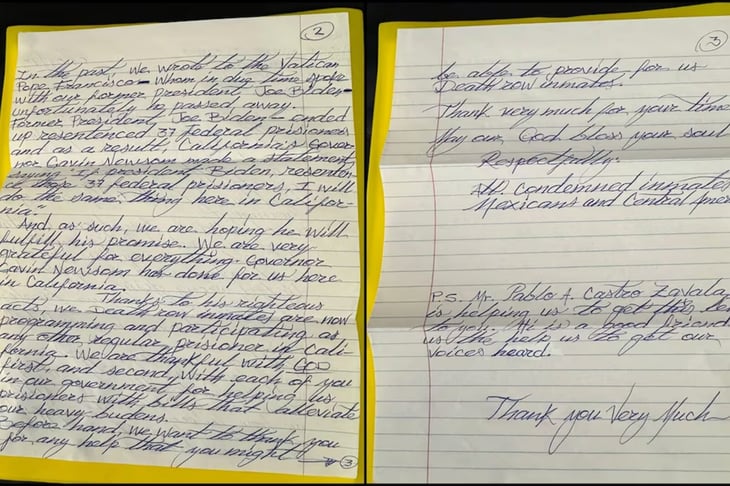 2
In the past, we wrote to the Vatican
Pope Francisco - whom in due time spoke
with our former President Joe Biden -
unfortunatly he passed away.
Former President, Joe Biden - ended
up resentenced 37 federal prisioners
and as a result, California's Gover
nor Gavin Newsom made a statement,
saying "If president Biden, resenten-
ce those 37 federal prisioners, I will
do the same thing here in Califor-
nia."
And as such, we are hoping he will
fulfill his promise. We are very
grateful for everything Governor
Gavin Newsom has done for us here
in California.
Thanks to his righteous
acts, we Death row inmates are now
programming and participating as
any other regular prisioner in Cali-
fornia. We are thankful with GOD
first, and second with each of you
in our government for helping us
prisioners with bills that alleviate
our heavy budens.
Before hand, we want to thank you
for any help that you might
3
3
be able to provide for us
Death row inmates.
Thank very much for your time
May our God bless your soul
Respectfully:
All Condemned inmates
Mexicans and Central Amer
P.S. Mr. Pablo A. Castro Zavala
is helping us to get this
to you. He is a good friend
us the help us to get our
voices heard.
Thank you Very Much